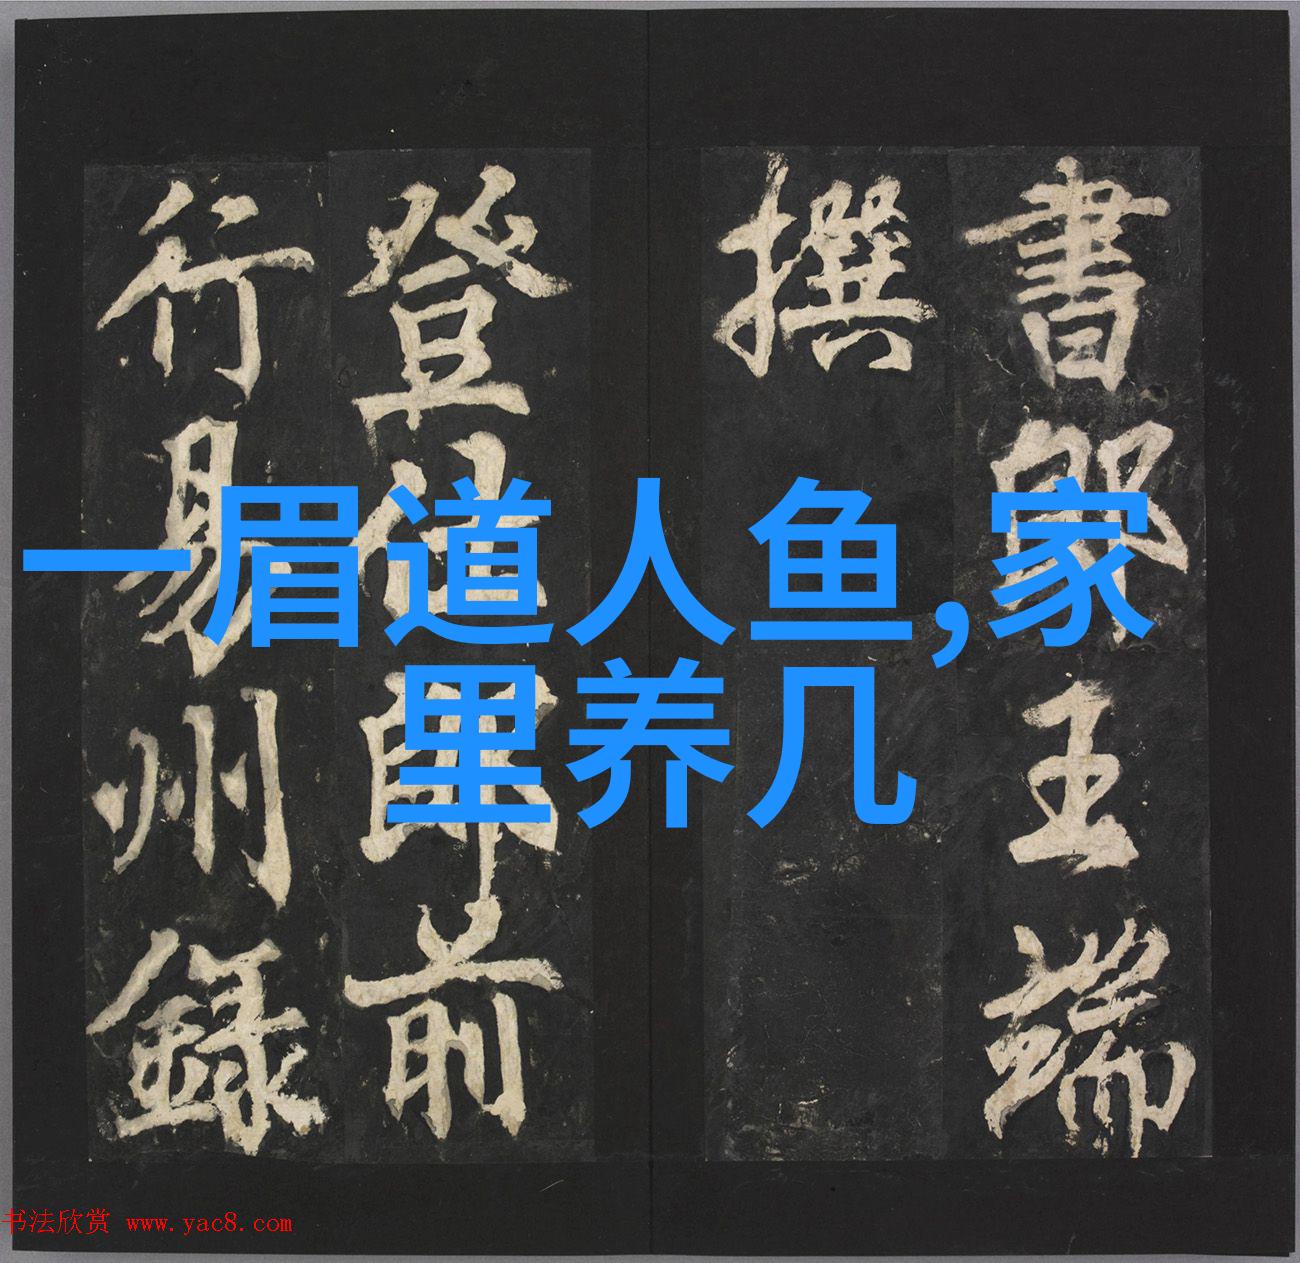 書郎王端
撰
登仕郎前
行易州録
一眉道人鱼,家
里养几
书法欣赏 www.yac8.com